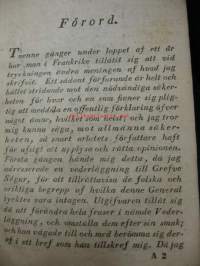 Förord.
Tvenne gånger under loppet af ett år
har man i Frankrike tillåtit sig att vid
tryckningen ändra meningen af hvad jag
skrifvit. Ett sådant förfarande är helt och
hållet stridande mot den nödvändiga säker-
heten för hvar och en som finner sig plig-
tig att meddela en offentlig förklaring öfver
något ämne, hvilket som helst, och jag tror
mig kunna säga, mot allmänna säker-
heten, då snart arbetets författare haft
för afsigt att upplysa och rätta opinionen.
Första gången hände mig detta, då jag
adresserade en vederläggning till Grefve
Ségur, för att tillrättavisa de falska och
oriktiga begrepp af hvilka denne General
tycktes vara intagen. Utgifvaren tillät sig
då att förändra hela fraser i nämde Veder-
läggning, och omställa dem efter sin smak;
och han vågade till och med berömma sig der-
af i ett bref som han tillskref mig. Då jag
A 2